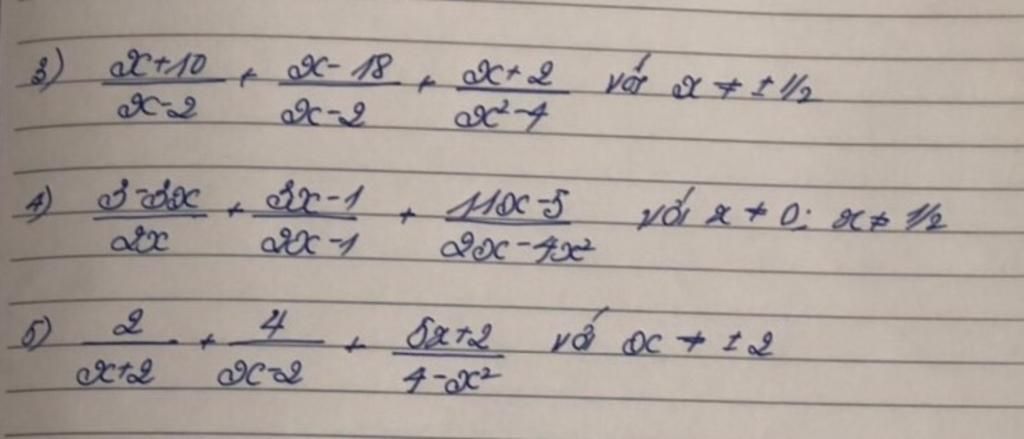 3) \frac{x+10}{x-2} + \frac{x-18}{x-2} + \frac{x+2}{x^2-4} với x ≠ ± 1/2
4) \frac{3-3x}{2x} + \frac{3x-1}{2x-1} + \frac{11x-5}{2x-4x^2} với x ≠ 0; x ≠ 1/2
5) \frac{2}{x+2} + \frac{4}{x-2} + \frac{5x+2}{4-x^2} với x ≠ ± 2